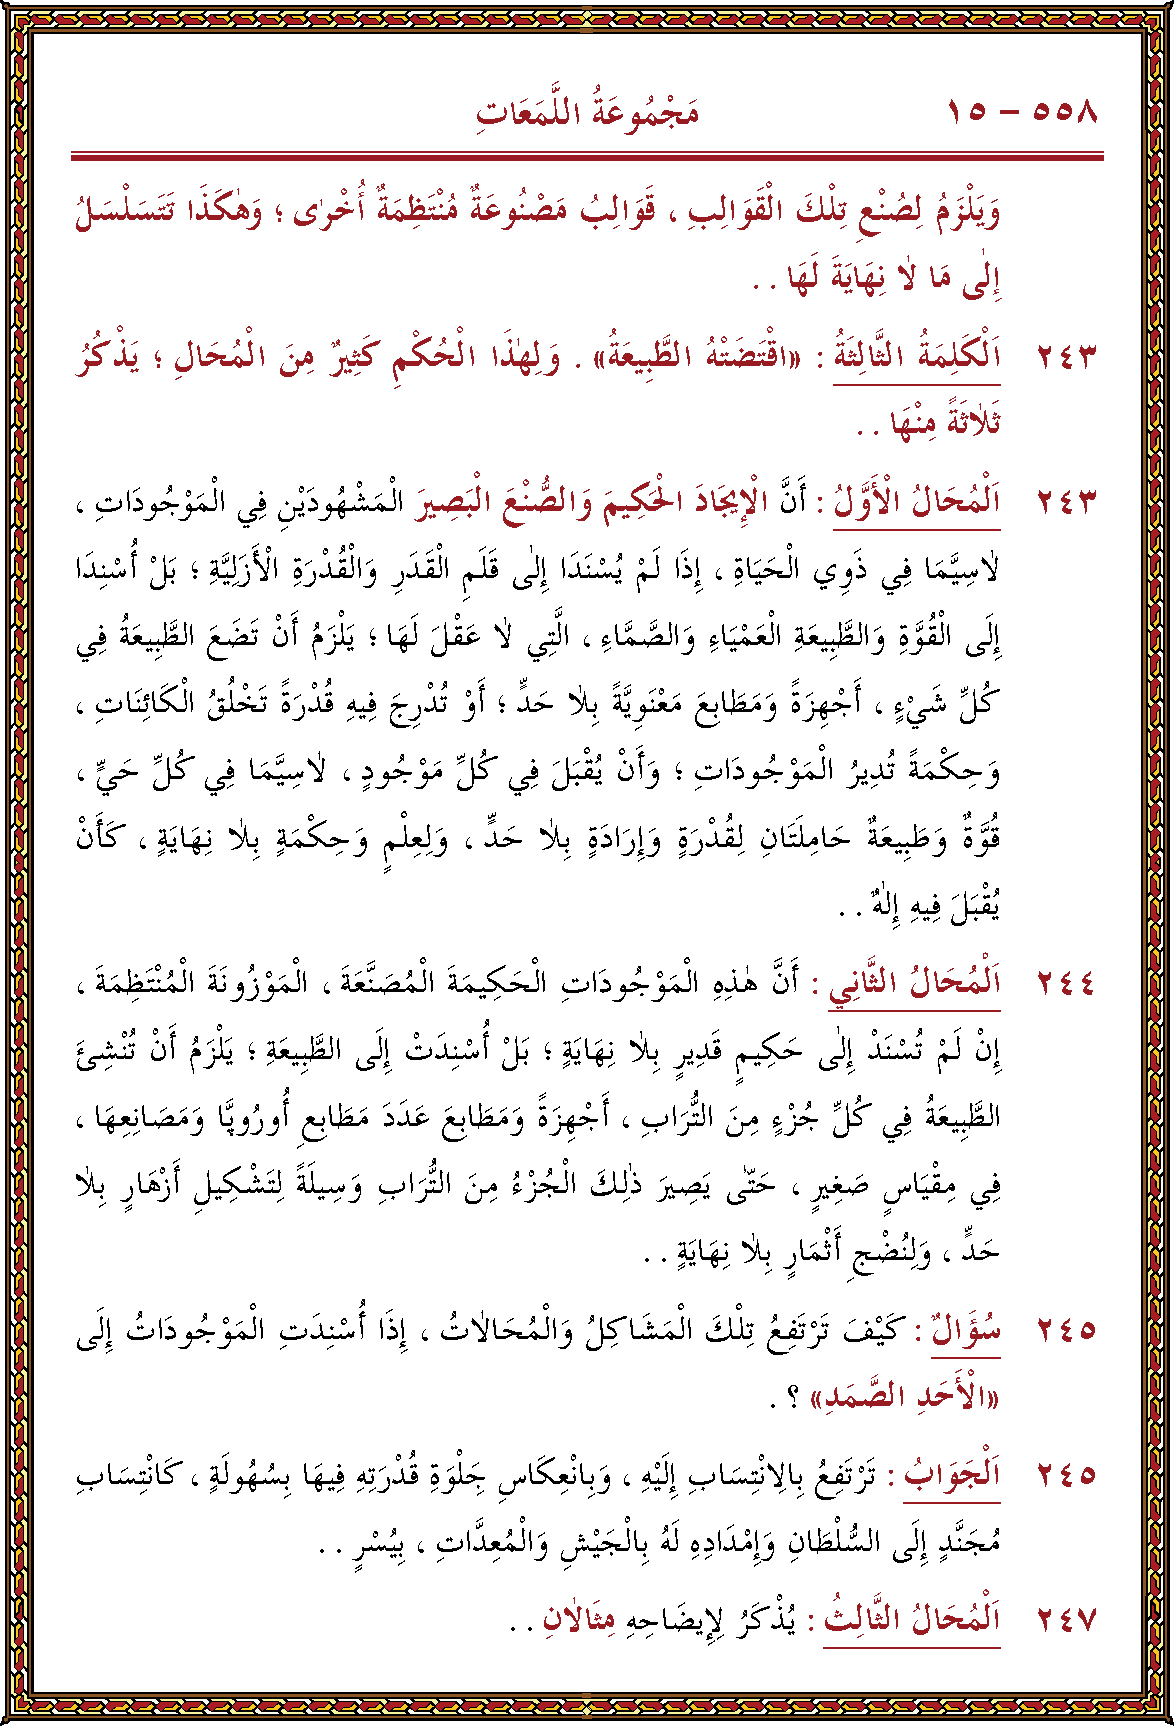 ٥٥٨ – ١٥ مَجْمُوعَةُ اللَّمَعَاتِ
وَيَلْزَمُ لِصُنْعِ تِلْكَ الْقَوَالِبِ ، قَوَالِبُ مَصْنُوعَةٌ مُنْتَظِمَةٌ أُخْرٰى ؛ وَهٰكَذَا تَتَسَلْسَلُ
إِلٰى مَا لَا نِهَايَةَ لَهَا . .
٢٤٣ اَلْكَلِمَةُ الثَّالِثَةُ : «اقْتَضَتْهُ الطَّبِيعَةُ» . وَلِهٰذَا الْحُكْمِ كَثِيرٌ مِنَ الْمُحَالِ ؛ يَذْكُرُ
ثَلَاثَةً مِنْهَا . .
٢٤٣ اَلْمُحَالُ الْأَوَّلُ : أَنَّ الْإِيجَادَ الْحَكِيمَ وَالصُّنْعَ الْبَصِيرَ الْمَشْهُودَيْنِ فِي الْمَوْجُودَاتِ ،
لَاسِيَّمَا فِي ذَوِي الْحَيَاةِ ، إِذَا لَمْ يُسْنَدَا إِلٰى قَلَمِ الْقَدَرِ وَالْقُدْرَةِ الْأَزَلِيَّةِ ؛ بَلْ أُسْنِدَا
إِلَى الْقُوَّةِ وَالطَّبِيعَةِ الْعَمْيَاءِ وَالصَّمَّاءِ ، الَّتِي لَا عَقْلَ لَهَا ؛ يَلْزَمُ أَنْ تَضَعَ الطَّبِيعَةُ فِي
كُلِّ شَيْءٍ ، أَجْهِزَةً وَمَطَابِعَ مَعْنَوِيَّةً بِلَا حَدٍّ ؛ أَوْ تُدْرِجَ فِيهِ قُدْرَةً تَخْلُقُ الْكَائِنَاتِ ،
وَحِكْمَةً تُدِيرُ الْمَوْجُودَاتِ ؛ وَأَنْ يُقْبَلَ فِي كُلِّ مَوْجُودٍ ، لَاسِيَّمَا فِي كُلِّ حَيٍّ ،
قُوَّةٌ وَطَبِيعَةٌ حَامِلَتَانِ لِقُدْرَةٍ وَإِرَادَةٍ بِلَا حَدٍّ ، وَلِعِلْمٍ وَحِكْمَةٍ بِلَا نِهَايَةٍ ، كَأَنْ
يُقْبَلَ فِيهِ إِلٰهٌ . .
٢٤٤ اَلْمُحَالُ الثَّانِي : أَنَّ هٰذِهِ الْمَوْجُودَاتِ الْحَكِيمَةَ الْمُصَنَّعَةَ ، الْمَوْزُونَةَ الْمُنْتَظِمَةَ ،
إِنْ لَمْ تُسْنَدْ إِلٰى حَكِيمٍ قَدِيرٍ بِلَا نِهَايَةٍ ؛ بَلْ أُسْنِدَتْ إِلَى الطَّبِيعَةِ ؛ يَلْزَمُ أَنْ تُنْشِئَ
الطَّبِيعَةُ فِي كُلِّ جُزْءٍ مِنَ التُّرَابِ ، أَجْهِزَةً وَمَطَابِعَ عَدَدَ مَطَابِعِ أُورُوپَّا وَمَصَانِعِهَا ،
فِي مِقْيَاسٍ صَغِيرٍ ، حَتّٰى يَصِيرَ ذٰلِكَ الْجُزْءُ مِنَ التُّرَابِ وَسِيلَةً لِتَشْكِيلِ أَزْهَارٍ بِلَا
حَدٍّ ، وَلِنُضْجِ أَثْمَارٍ بِلَا نِهَايَةٍ . .
٢٤٥ سُؤَالٌ : كَيْفَ تَرْتَفِعُ تِلْكَ الْمَشَاكِلُ وَالْمُحَالَاتُ ، إِذَا أُسْنِدَتِ الْمَوْجُودَاتُ إِلَى
«الْأَحَدِ الصَّمَدِ» ؟ .
٢٤٥ اَلْجَوَابُ : تَرْتَفِعُ بِالِانْتِسَابِ إِلَيْهِ ، وَبِانْعِكَاسِ جِلْوَةِ قُدْرَتِهِ فِيهَا بِسُهُولَةٍ ، كَانْتِسَابِ
مُجَنَّدٍ إِلَى السُّلْطَانِ وَإِمْدَادِهِ لَهُ بِالْجَيْشِ وَالْمُعِدَّاتِ ، بِيُسْرٍ . .
٢٤٧ اَلْمُحَالُ الثَّالِثُ : يُذْكَرُ لِإِيضَاحِهِ مِثَالَانِ . .